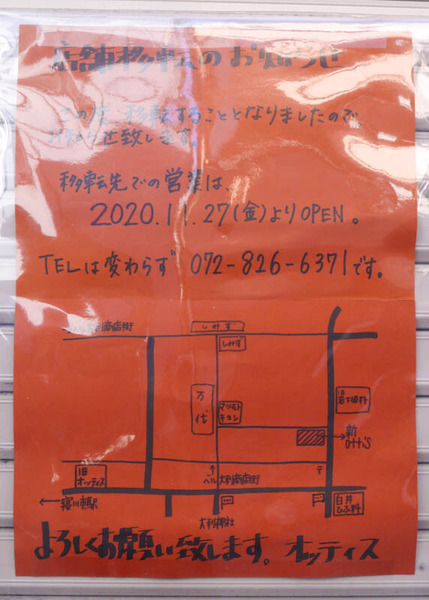 店舗移転のお知らせ
この度 移転することとなりましたので
お知らせ致します。
移転先での営業は、
2020.11.27(金)よりOPEN。
TELは変わらず 072-826-6371です。
商店街
しみず
しみず
万代
マツモト
キヨシ
旧
新
Otti's
旧
オッティス
ベル大利商店街
〒
寝屋川市駅
大利神社
白井
ひふ科
よろしくお願い致します。オッティス